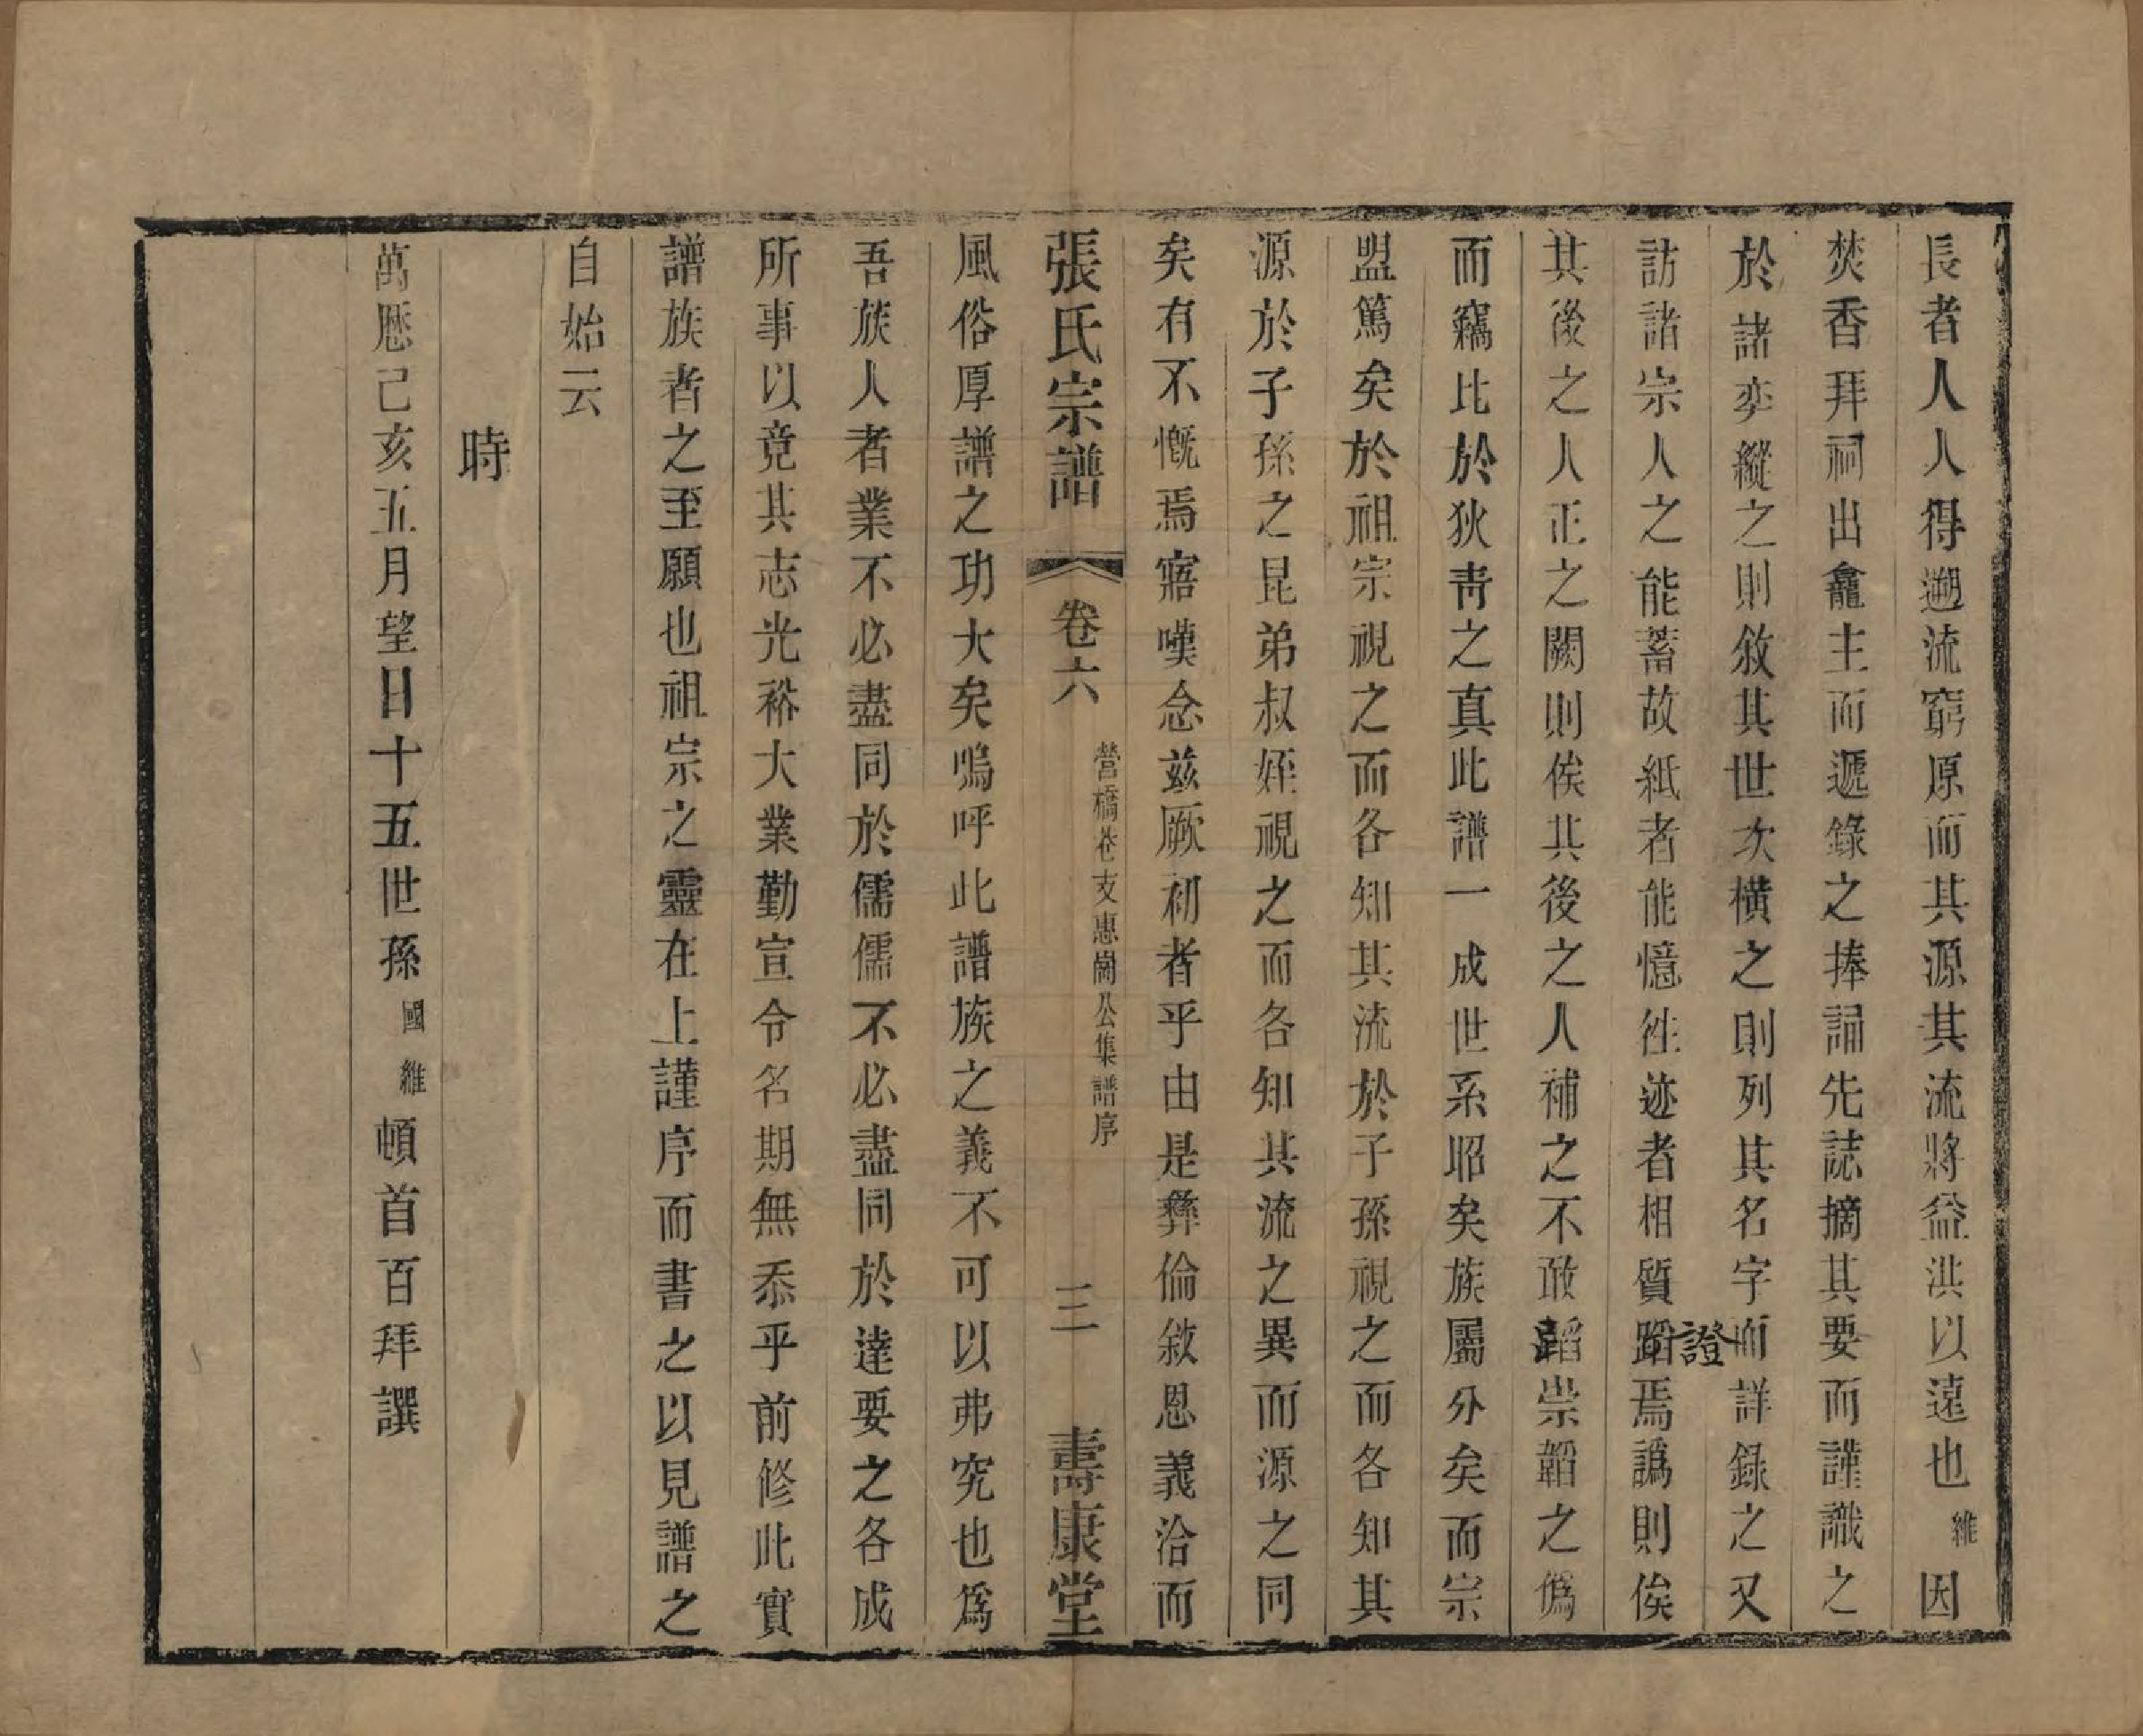 長者人人得遡流窮原而其源其流將益洪以遠也維因
焚香拜祠出龕主而遞錄之捧誦先誌摘其要而謹識之
於諸牵縱之則敘其世次橫之則列其名字而詳録之又
訪諸宗人之能蓄故紙者能憶徃迹者相質證焉譌則俟
其後之人正之闕則俟其後之人補之不敢蹈崇韜之僞
而竊比於狄青之真此譜一成世系昭矣族屬分矣而宗
盟篤矣於祖宗視之而各知其流於子孫視之而各知其
源於子孫之昆弟叔姪視之而各知其流之異而源之同
矣有不慨焉寤嘆念兹厥初者乎由是彝倫敘恩義洽而
張氏宗譜
卷六
營橋巷支惠崗公集譜序
三
壽康堂
風俗厚譜之功大矣嗚呼此譜族之義不可以弗究也爲
吾族人者業不必盡同於儒儒不必盡同於達要之各成
所事以竟其志光裕大業勤宣令名期無忝乎前修此實
譜族者之至願也祖宗之靈在上謹序而書之以見譜之
自始云
時
萬厯己亥五月望日十五世孫國維頓首百拜譔